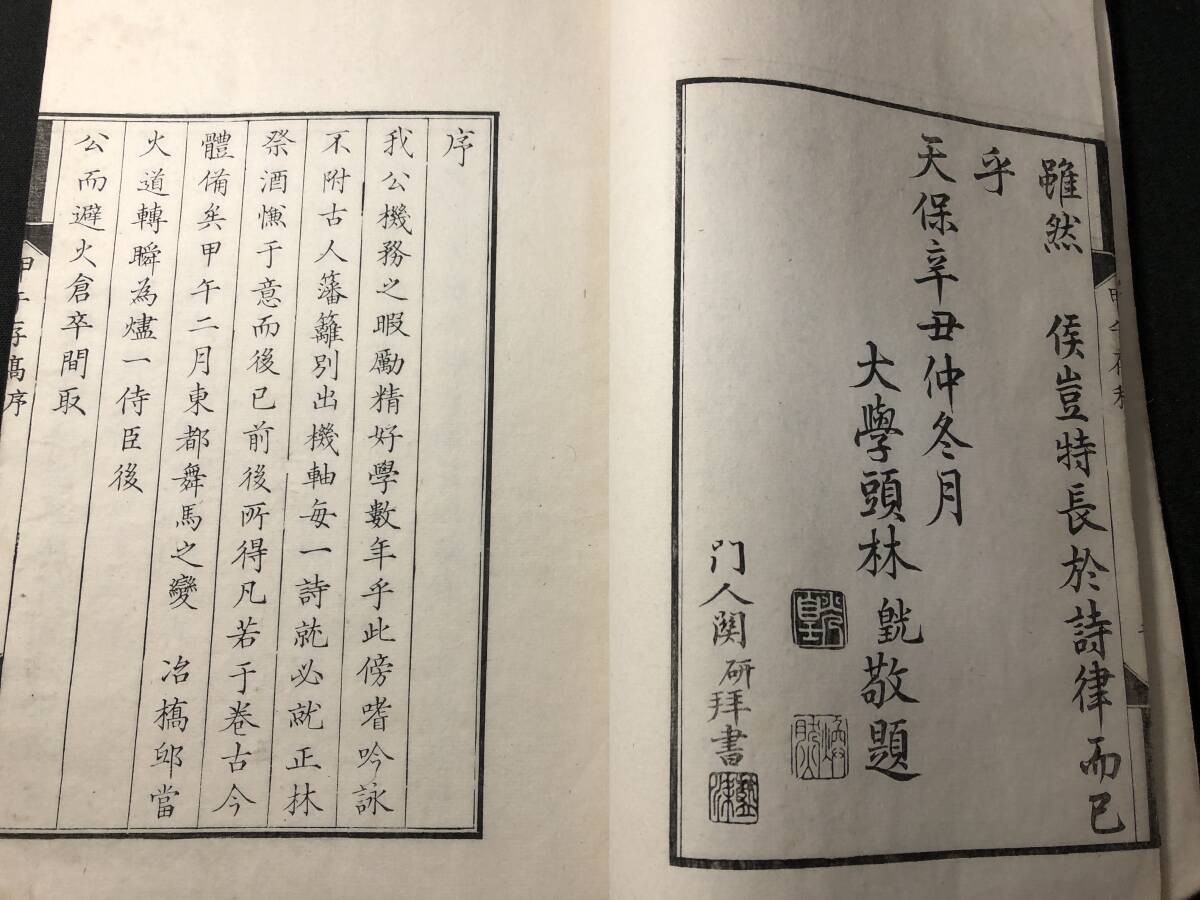 雖然　侯豈特長於詩律而已
乎
天保辛丑仲冬月
大學頭林皝敬題
门人関研拜書
序
我公機務之暇勵精好學數年乎此傍嗜吟詠
不附古人籓籬別出機軸每一詩就必就正林
祭酒慊于意而後已前後所得凡若于卷古今
體備矣甲午二月東都舞馬之變　冶橋邸當
火道轉瞬為燼一侍臣後
公而避火倉卒間取
甲午存稾序